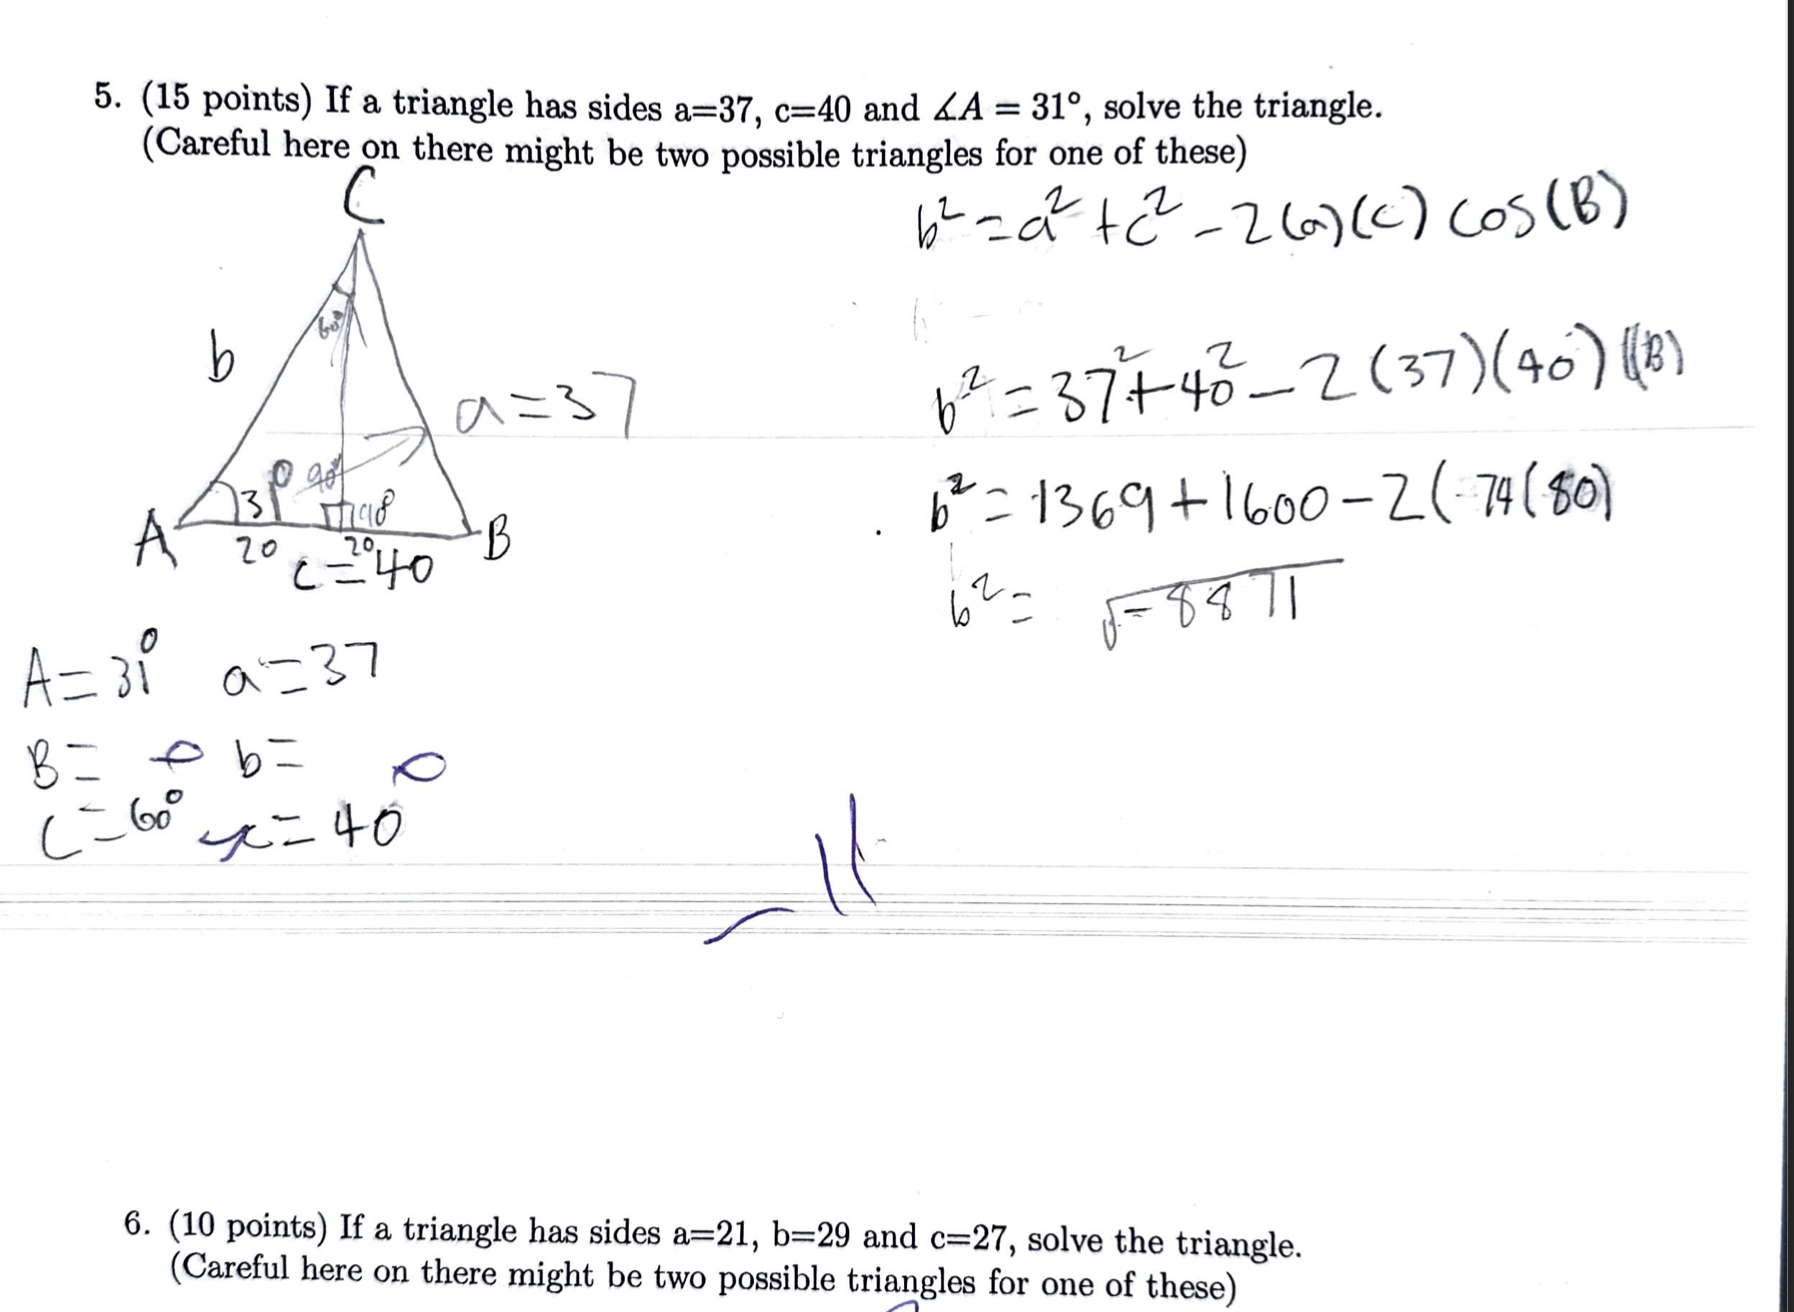 5. (15 points) If a triangle has sides a=37, c=40 and ∡A = 31°, solve the triangle.
(Careful here on there might be two possible triangles for one of these)
C
b² = a² + c² - 2(a)(c) cos(B)
60°
b
a=37
b² = 37² + 40² - 2(37)(40)((B)
31° 90°
90°
b² = 1369 + 1600 - 2(-74(80)
A
20
20
B
c=40
b² = √-8871
A=31° a=37
B= b=
C=60° c=40
-11
6. (10 points) If a triangle has sides a=21, b=29 and c=27, solve the triangle.
(Careful here on there might be two possible triangles for one of these)